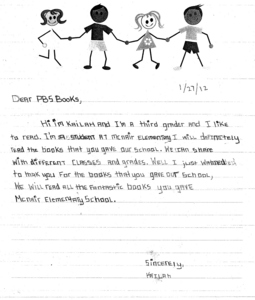 1/27/12
Dear PBS Books,
Hi im Kailah and I'm a third grader and I like
to read. I'm a student at McNair Elementary. I will definetely
read the books that you gave our school. We can share
with different classes and grades. Well I just wanted
to thank you for the books that you gave our school,
We will read all the fantastic books you gave
McNair Elementary School.
Sincerely,
Kailah